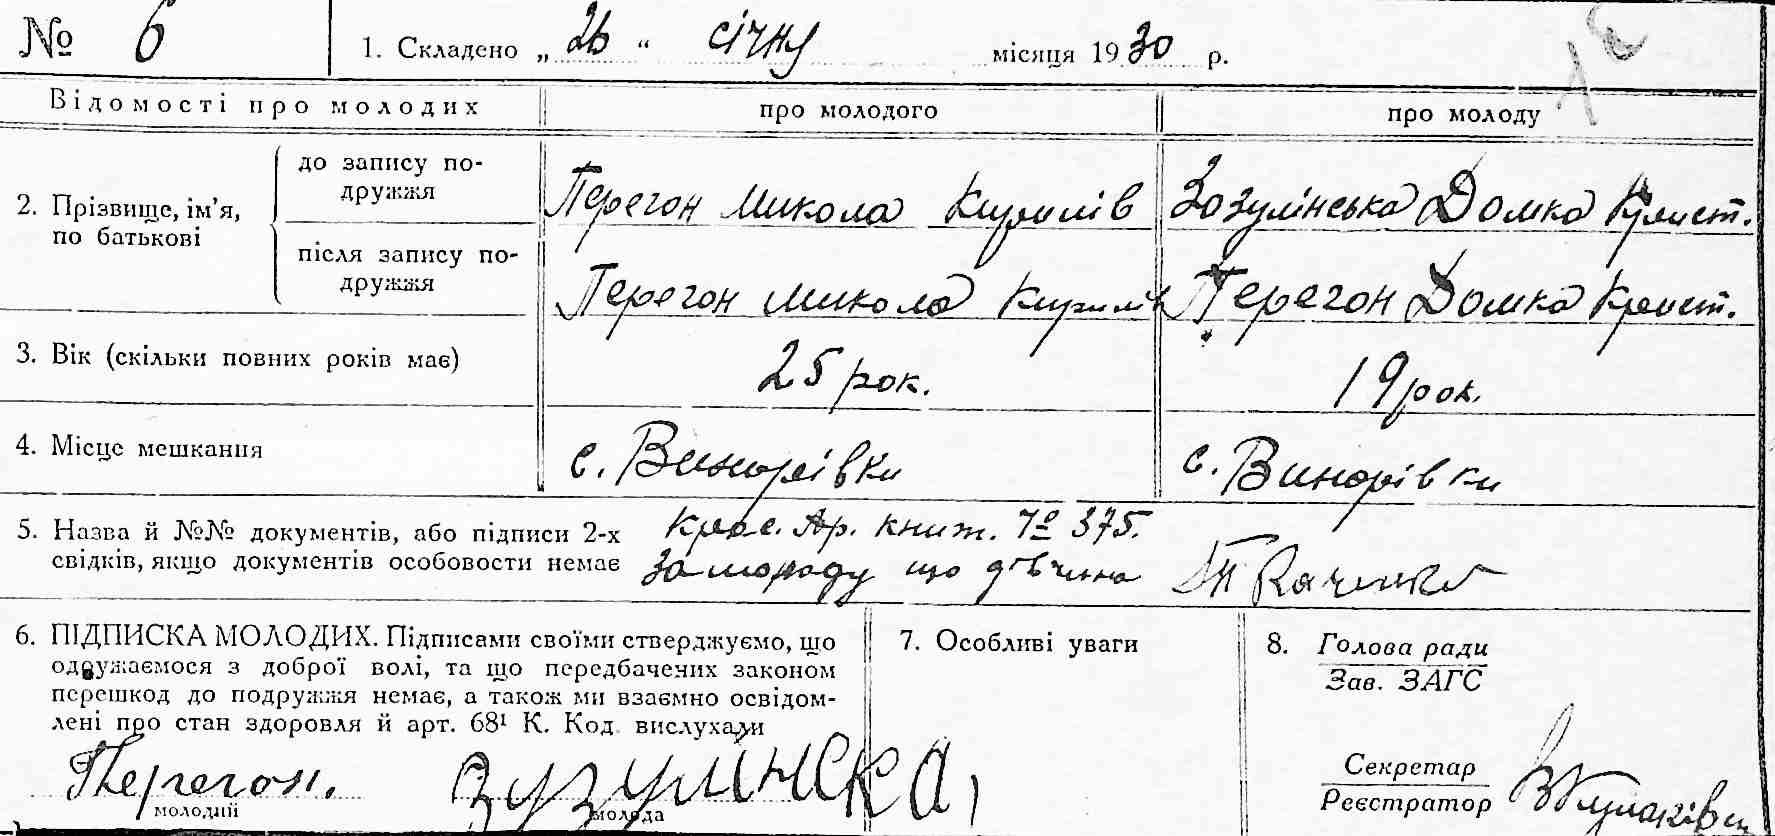 № 6
1. Складено „ 26 “ січня місяця 1930 р.
Відомості про молодих
про молодого
про молоду
2. Прізвище, ім’я,
по батькові
до запису по-
дружжя
Перегон Микола Кирилів
Зозулінська Домка
після запису по-
дружжя
Перегон Микола Кирилів
Перегон Домка
3. Вік (скільки повних років має)
25 рок.
19 рок.
4. Місце мешкання
с. Винорівки
с. Винорівки
5. Назва й №№ документів, або підписи 2-х
свідків, якщо документів особовости немає
Ар. книж. № 375.
що дівчина
Ткаченко
6. ПІДПИСКА МОЛОДИХ. Підписами своїми стверджуємо, що
одружаємося з доброї волі, та що передбачених законом
перешкод до подружжя немає, а також ми взаємно освідом-
лені про стан здоровля й арт. 68¹ К. Код. вислухали
Перегон.
молодий
Зузулинска,
молода
7. Особливі уваги
8. Голова ради
Зав. ЗАГС
Секретар
Реєстратор